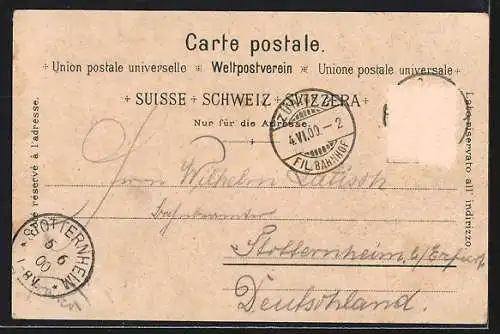 Carte postale.
Union postale universelle Weltpostverein Unione postale universale
SUISSE SCHWEIZ SVIZZERA
Nur für die Adresse
Côté réservé à l'adresse.
Lato riservato all' indirizzo
4.VI.00.-2
FIL. BAHNHOF
Herrn Wilhelm
STOTTERNHEIM
6
6
00
Stotternheim b/Erfurt
Deutschland.